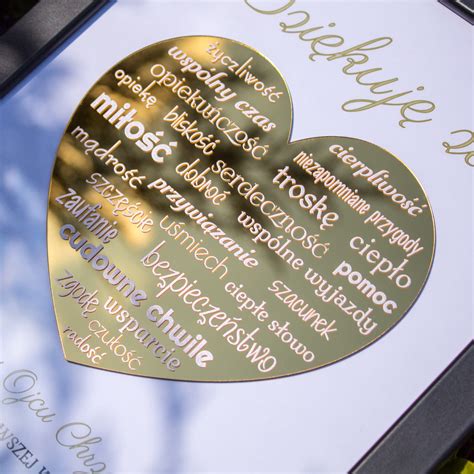 Dziękuję
życzliwość
wspólny czas
opiekę
opiekuńczość
miłość
bliskość
cierpliwość
niezapomniane przygody
mądrość
dobroć
serdeczność
troskę
szczęście
przywiązanie
ciepło
zaufanie
uśmiech
wspólne wyjazdy
pomoc
cudowne chwile
bezpieczeństwo
szacunek
zgodę
ciepłe słowo
wsparcie
czułość
radość
Ojcu Chrz